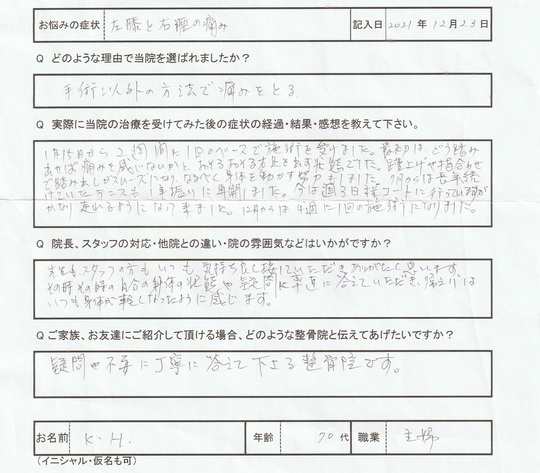 お悩みの症状 左膝と右踵の痛み 記入日 2021年12月23日
Q どのような理由で当院を選ばれましたか？
手術以外の方法で痛みをとる
Q 実際に当院の治療を受けてみた後の症状の経過・結果・感想を教えて下さい。
1月15日から2週間に1回のペースで施術を受けました。最初は、どう踏み
出せば痛みを感じないかと、おそるおそる足を出す状態でした。踵上げや
で踏み出しがスムーズになり、なるべく身体を動かす努力をしました。7月からは長年続
けていたテニスも 半年振りに再開しました。今は週3日程コートに行っていますが
かなり走れるようになって来ました。12月からは4週に1回の施術になりました。
Q 院長、スタッフの対応・他院との違い・院の雰囲気などはいかがですか？
先生もスタッフの方も いつも気持ち良く接していただき ありがたく思います。
その時その時の自分の身体の状態や疑問に 丁寧に答えていただき、帰りには
いつも身体が軽くなったように感じます。
Q ご家族、お友達にご紹介して頂ける場合、どのような整骨院と伝えてあげたいですか？
疑問や不安に丁寧に答えて下さる整骨院です。
お名前 K.H. 年齢 70代 職業 主婦
（イニシャル・仮名も可）